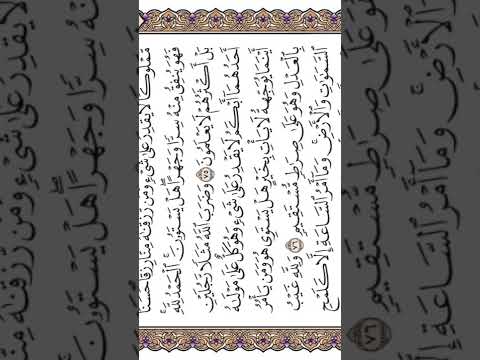 مَّمْلُوكًا لَّا يَقْدِرُ عَلَىٰ شَىْءٍ وَمَن رَّزَقْنَٰهُ مِنَّا رِزْقًا حَسَنًا
فَهُوَ يُنفِقُ مِنْهُ سِرًّا وَجَهْرًا هَلْ يَسْتَوُۥنَ ٱلْحَمْدُ لِلَّهِ
بَلْ أَكْثَرُهُمْ لَا يَعْلَمُونَ ٧٥ وَضَرَبَ ٱللَّهُ مَثَلًا رَّجُلَيْنِ
أَحَدُهُمَآ أَبْكَمُ لَا يَقْدِرُ عَلَىٰ شَىْءٍ وَهُوَ كَلٌّ عَلَىٰ مَوْلَىٰهُ
أَيْنَمَا يُوَجِّههُّ لَا يَأْتِ بِخَيْرٍ هَلْ يَسْتَوِى هُوَ وَمَن يَأْمُرُ
بِٱلْعَدْلِ وَهُوَ عَلَىٰ صِرَٰطٍ مُّسْتَقِيمٍ ٧٦ وَلِلَّهِ غَيْبُ
ٱلسَّمَٰوَٰتِ وَٱلْأَرْضِ وَمَآ أَمْرُ ٱلسَّاعَةِ إِلَّا كَلَمْحِ